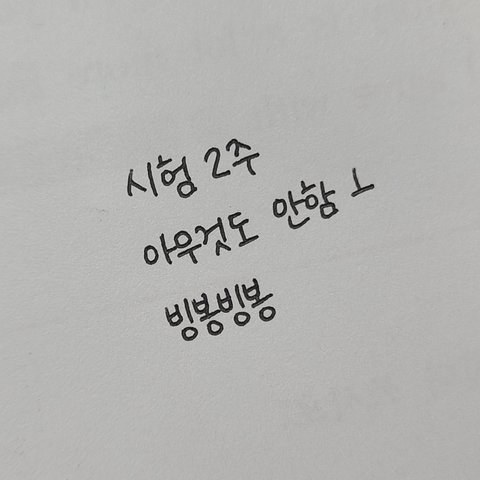 시험 2주
아우것도 안함ㅗ
빙봉빙봉